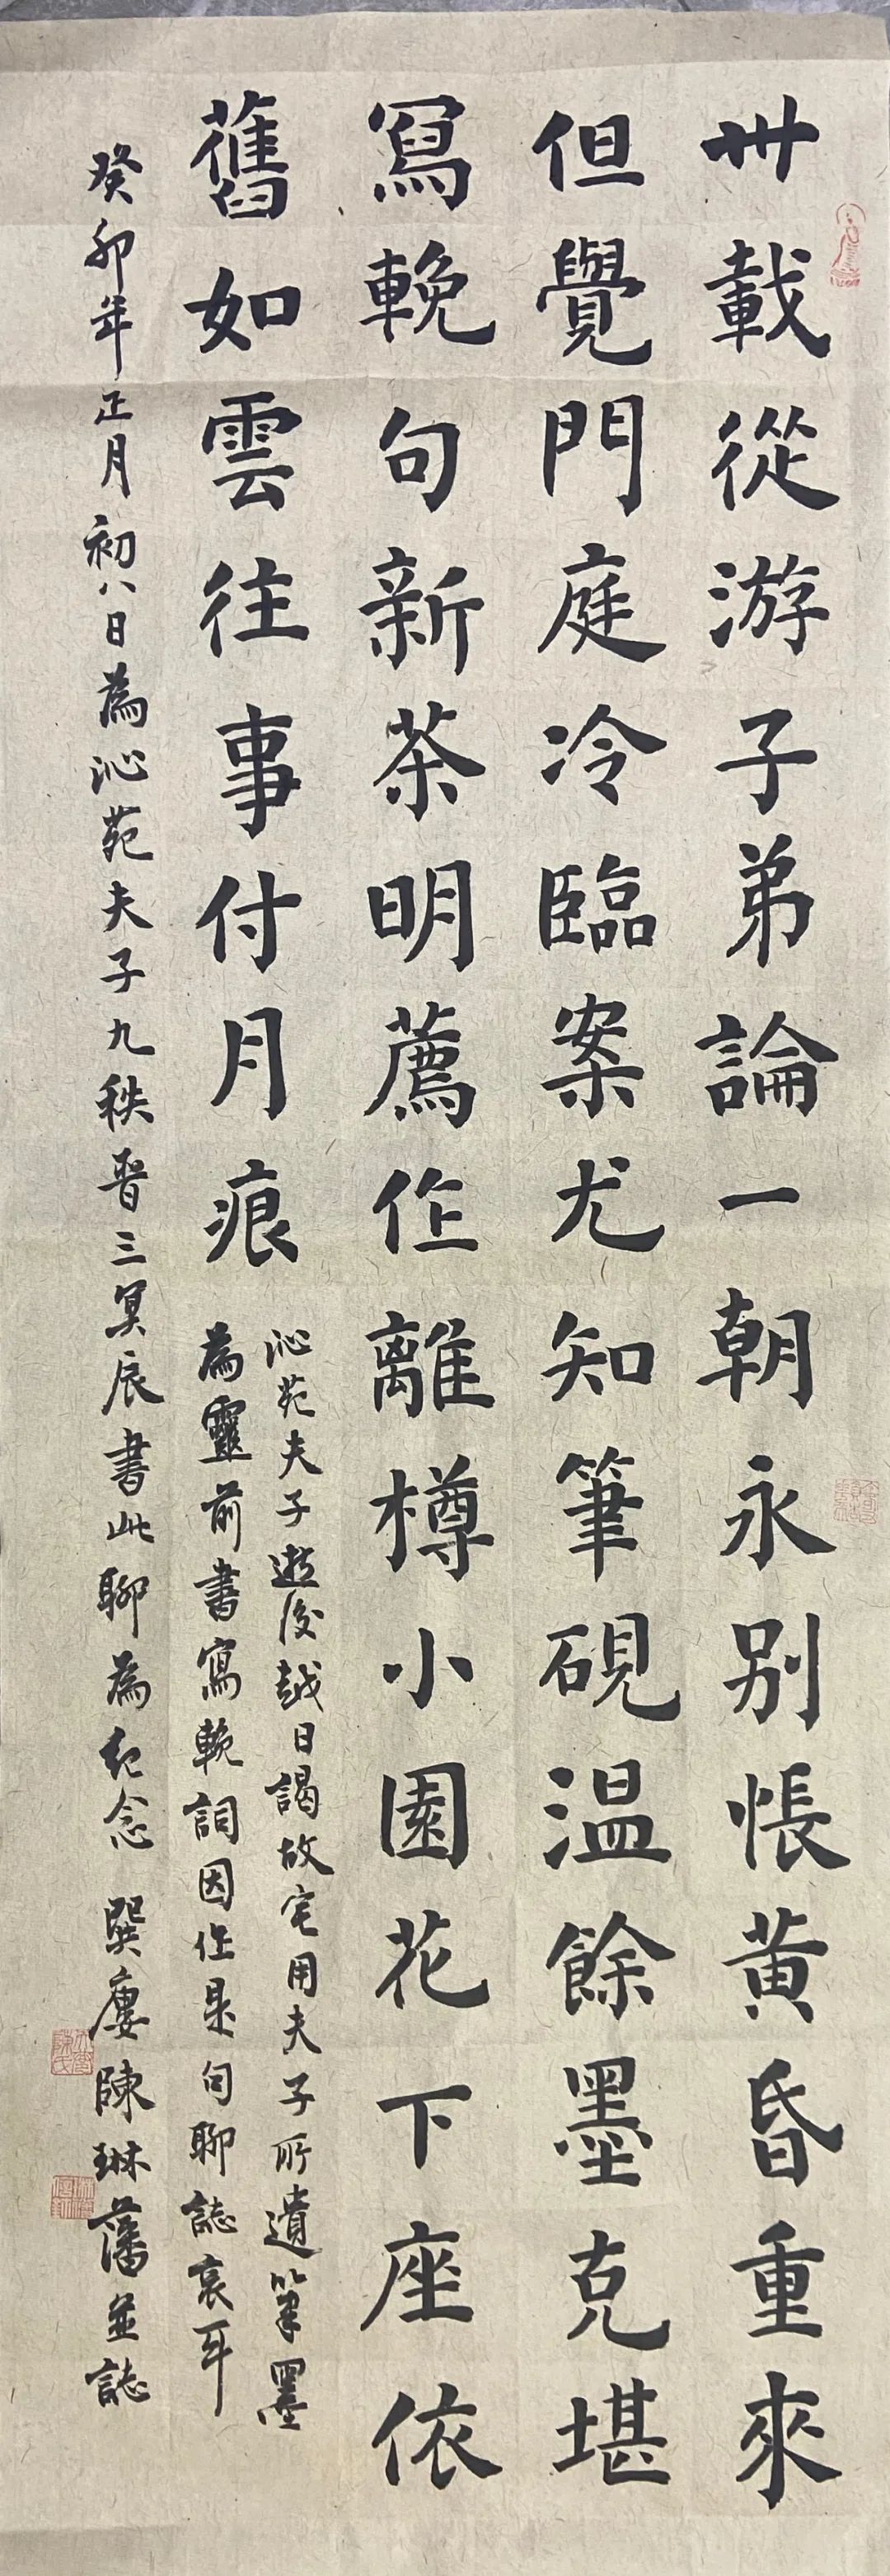 卅載從游子弟論一朝永别悵黄昏重來
但覺門庭冷臨案尤知筆硯温餘墨克堪
寫輓句新茶明薦作離樽小園花下座依
舊如雲往事付月痕
沁苑夫子逝後越日謁故宅用夫子所遺筆墨
為靈前書寫輓詞因作是句聊誌哀耳
癸卯年正月初八日為沁苑夫子九秩晉三冥辰書此聊為紀念 巽廔陳琳藩並誌